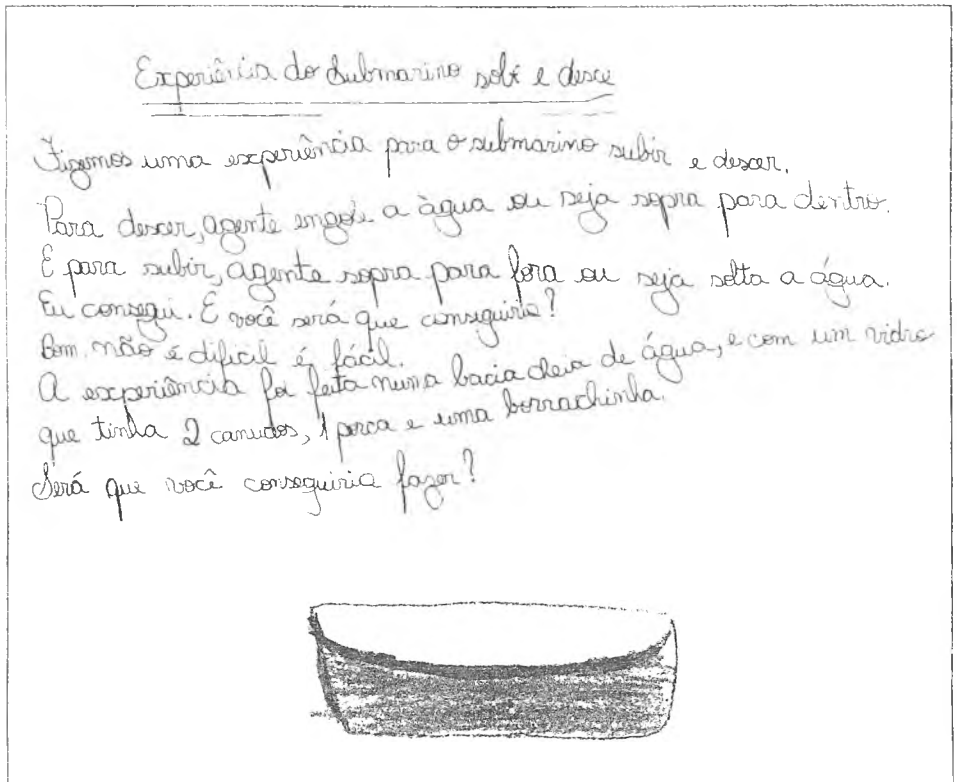 Experiência do Submarino sobe e desce
Fizemos uma experiência para o submarino subir e descer.
Para descer, agente engole a àgua ou seja sopra para dentro.
E para subir, agente sopra para fora ou seja solta a água.
Eu consegui. E você será que conseguiria?
Bom não é dificil é fácil.
A experiência foi feita numa bacia cheia de água, e com um vidro
que tinha 2 canudos, 1 porca e uma borrachinha.
Será que você conseguiria fazer?